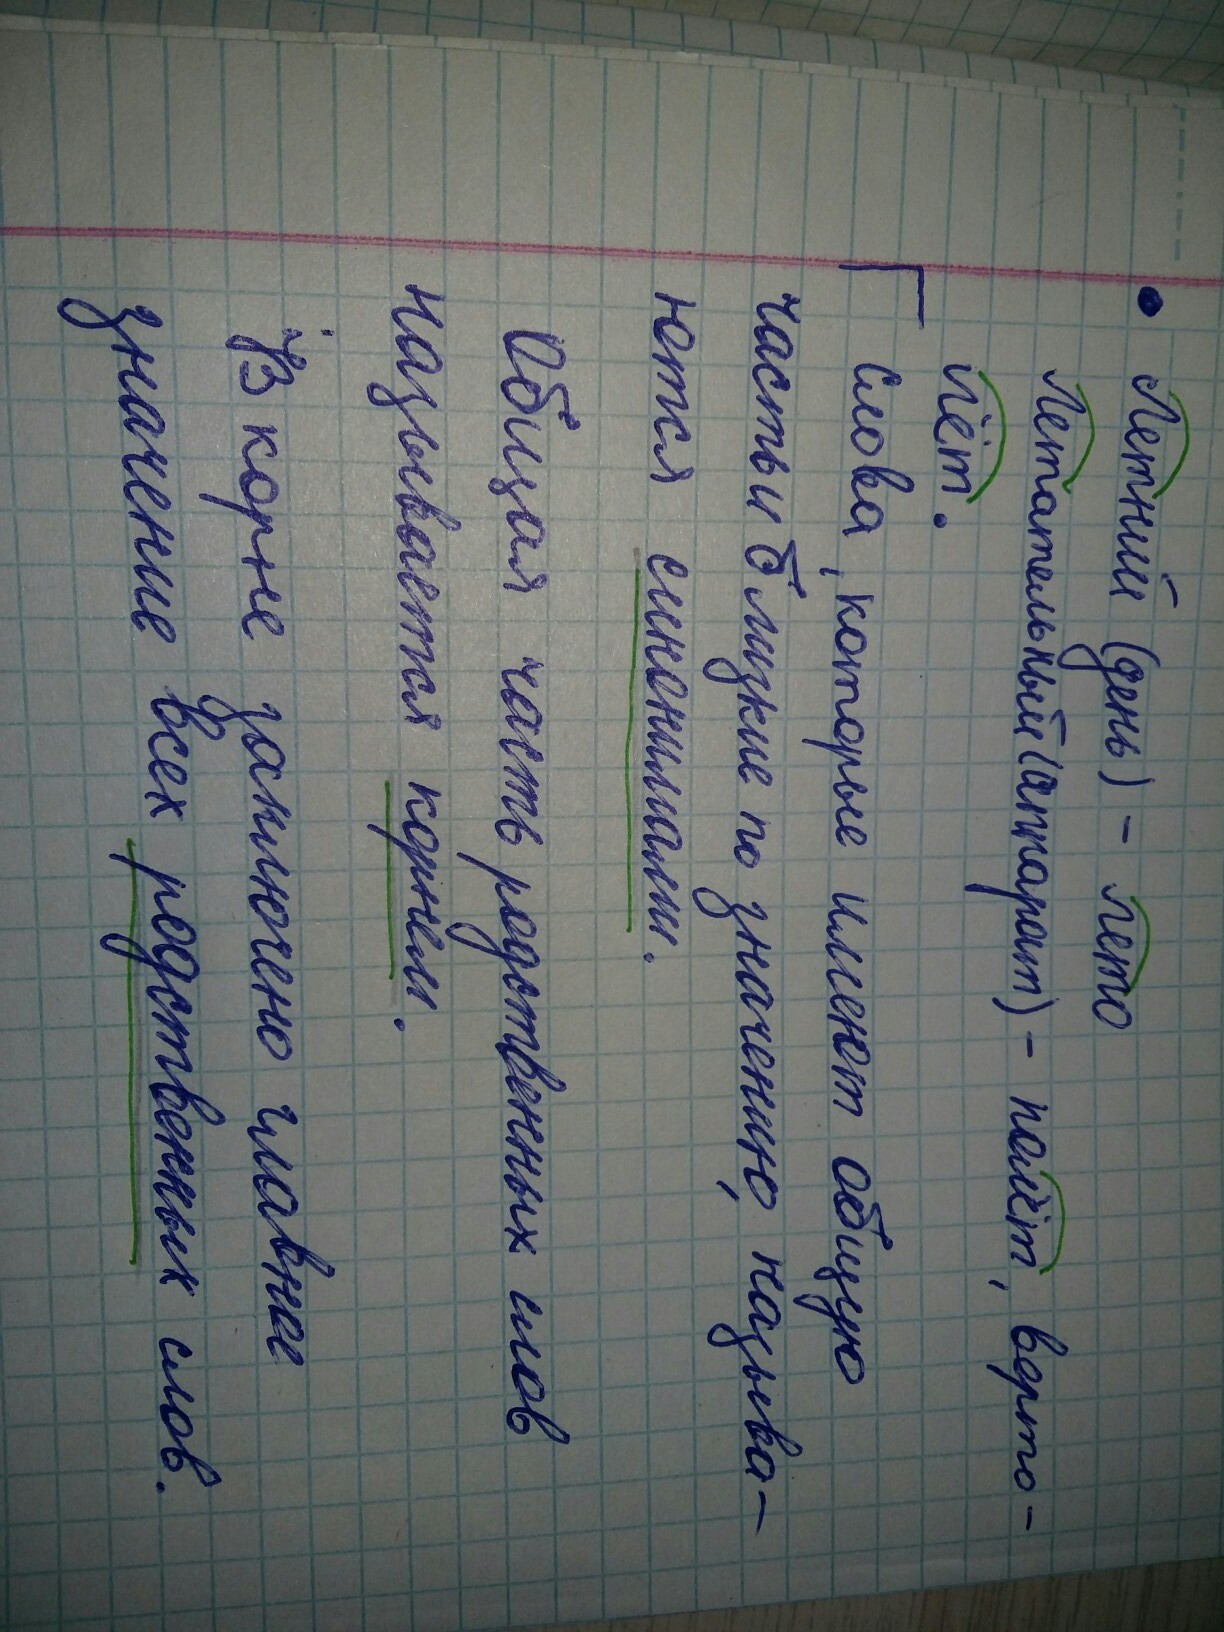 • Летний (день) – лето
Летательный (аппарат) – полёт, верто-
лёт.
Слова, которые имеют общую
часть и близкие по значению, называ-
ются синонимами.
Общая часть родственных слов
называется корнем.
В корне заключено главное
значение всех родственных слов.